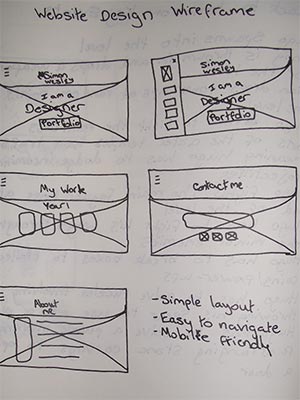 Website Design Wireframe
Simon
Wesley
I am a
Designer
Portfolio
x
Simon
Wesley
I am a
Designer
Portfolio
My Work
Year 1
Contact me
About
me
- Simple layout
- Easy to navigate
- Mobile friendly